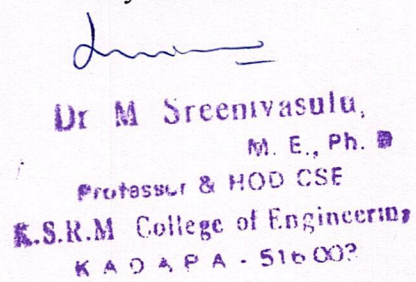 Dr M Sreenivasulu,
M. E., Ph. D
Professor & HOD CSE
K.S.R.M College of Engineering
KADAPA - 516 003